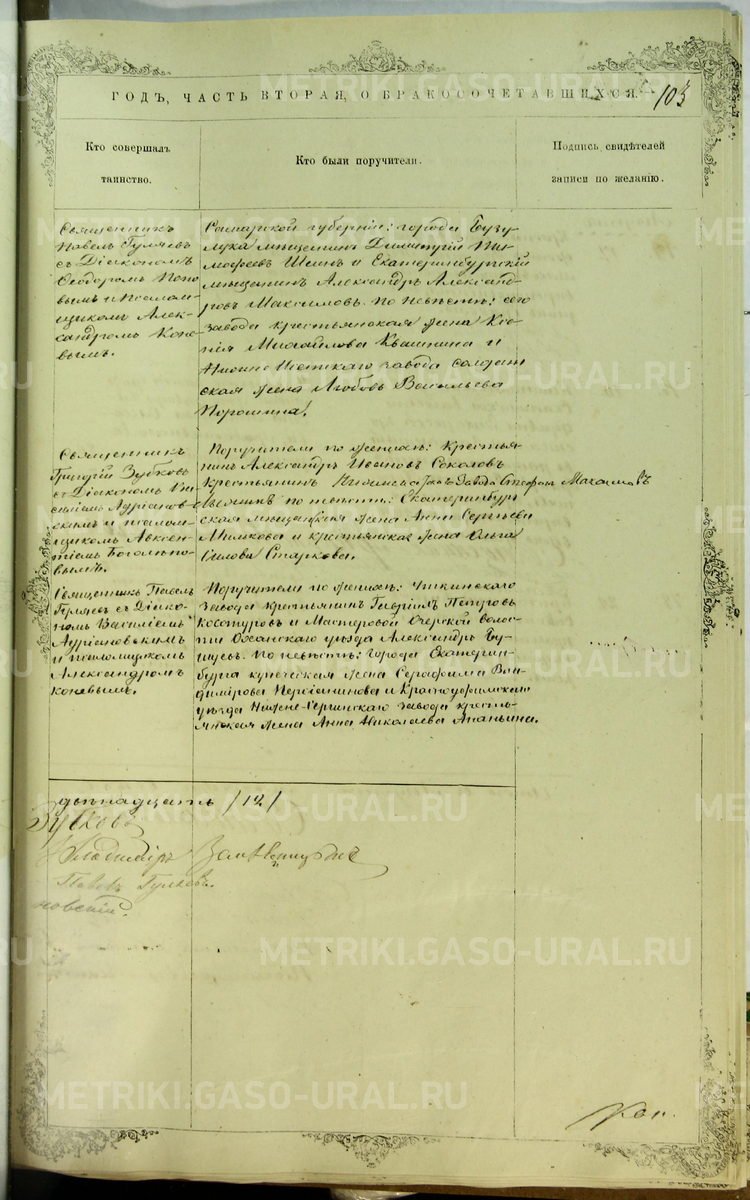 ГОДЪ, ЧАСТЬ ВТОРАЯ, О БРАКОСОЧЕТАВШИХСЯ.
103
Кто совершалъ
таинство.
Кто были поручители.
Подпись свидѣтелей
записи по желанію.
Священникъ
Павелъ Гуляевъ
съ Діакономъ
Ѳеодоромъ Попо
вымъ и псалом
щикомъ Алек-
сандромъ Коне
вымъ.
Самарской губерніи: города Бузу
лука мѣщанинъ Димитрій Ти
моѳеевъ Шеинъ и Екатеринбургскій
мѣщанинъ Александръ Александ
ровъ Максимовъ. По невѣстѣ: сего
завода крестьянская жена Ксе
нія Михайлова Квашнина и
Нижне Исетскаго завода солдат
ская жена Любовь Васильева
Порошина.
Священникъ
Григорій Зубковъ
съ Діакономъ Ва
силіемъ Адріанов
скимъ и псалом
щикомъ Авксен
тіемъ Боголѣпо
вымъ.
Поручители по женихѣ: Крестья
нинъ Александръ Ивановъ Соколовъ
крестьянинъ завода Стефанъ
по невѣстѣ: Екатеринбург
ская мѣщанская жена Анна Сергѣева
и крестьянская жена Ольга
Старкова.
Священникъ Павелъ
Гуляевъ съ Діако-
номъ Василіемъ
Адріановскимъ
и псаломщикомъ
Александромъ
Коневымъ.
Поручители по женихѣ: Уткинскаго
завода крестьянинъ Гавріилъ Петровъ
Косотуровъ и Мастеровой Очерской воло-
сти Оханскаго уѣзда Александръ
По невѣстѣ: города Екатерин-
бурга купеческая жена Серафима Вла-
димірова и Красноуфимскаго
уѣзда Нижне-Сергинскаго завода кресть-
янская жена Анна Николаева Ананьина.
двѣнадцать /12/
Зубковъ
Владиміръ
Павелъ Гуляевъ.
новскій.
METRIKI.GASO-URAL.RU
METRIKI.GASO-URAL.RU
METRIKI.GASO-URAL.RU
METRIKI.GASO-URAL.RU
METRIKI.GASO-URAL.RU
METRIKI.GASO-URAL.RU